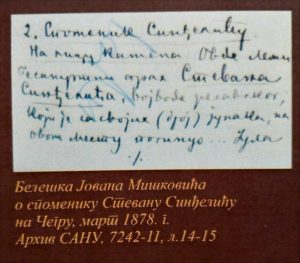 2. Споменик Синђелићу.
На лицу камена: Овде лежи
бесмртни прах Стевана
Синђелића, војводе ресавског,
који је са својих (број) јунака, на
овом месту погинуо... Јула
./.
Белешка Јована Мишковића
о споменику Стевану Синђелићу
на Чегру, март 1878. г.
Архив САНУ, 7242-11, л.14-15